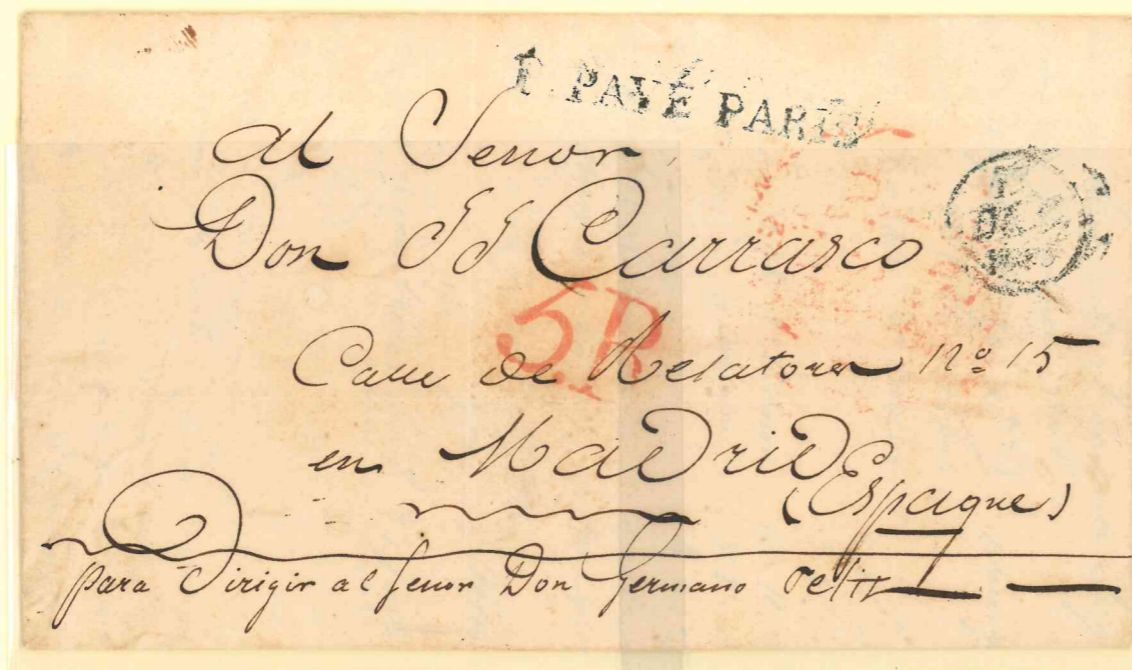 P. PAYÉ PARIS
al Senor
Don JJ Carrasco
5R
Calle de Relatores nº 15
en Madrid
(Espagne)
para Dirigir al Senor Don Germano